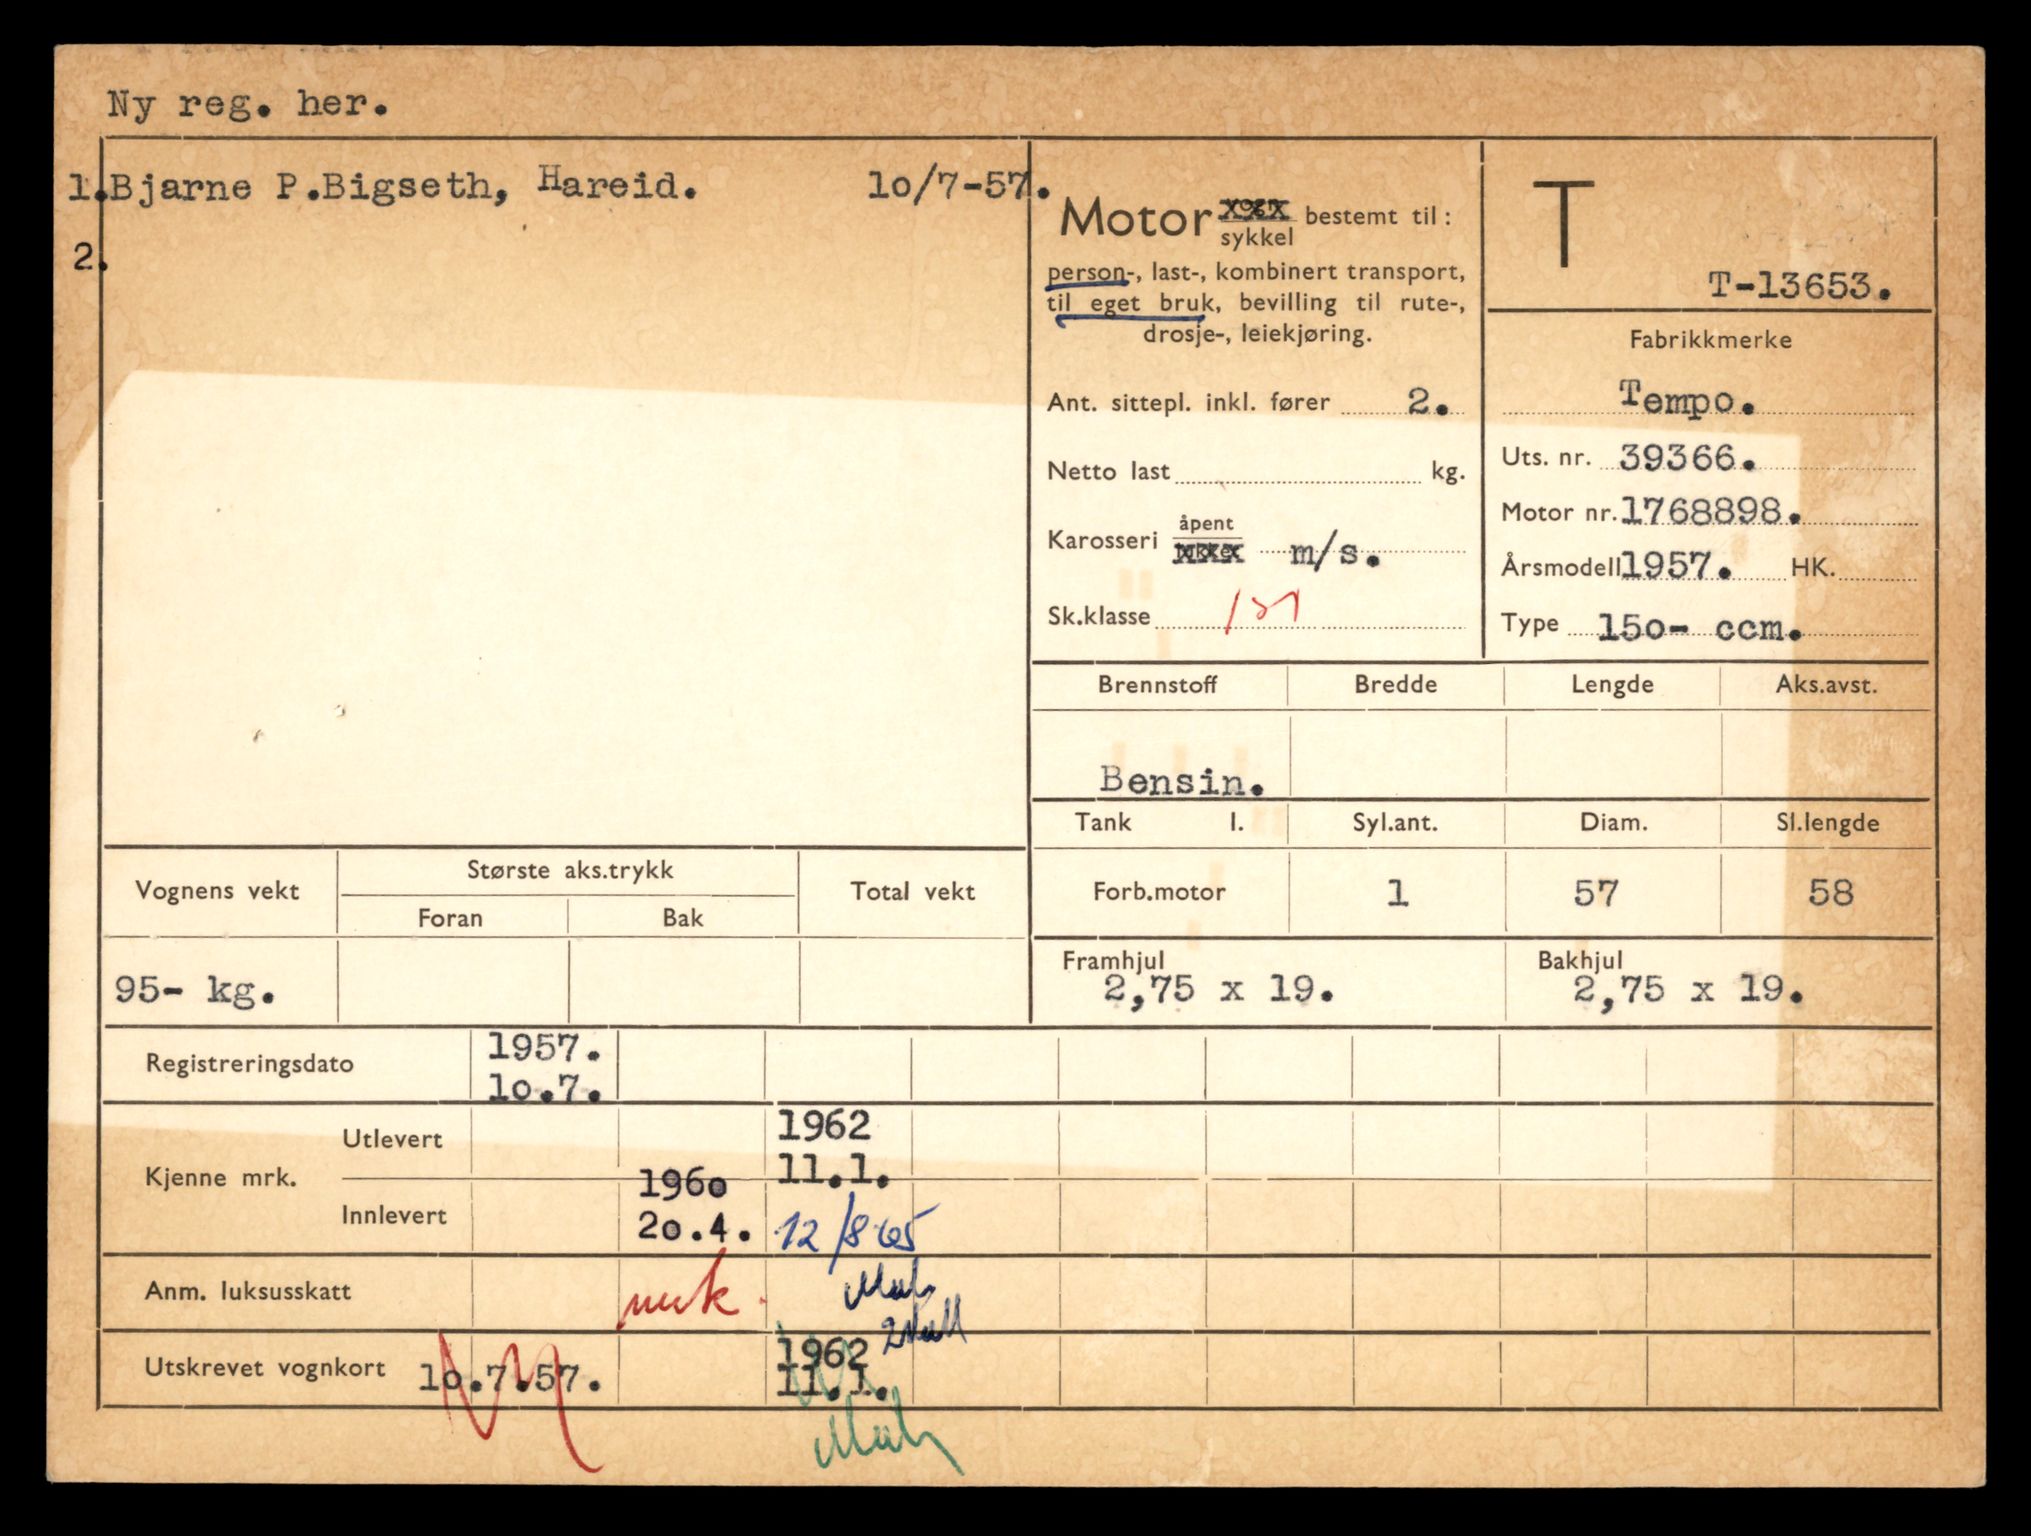 Ny reg. her.
1. Bjarne P.Bigseth, Hareid. 10/7-57.
2.
Motor sykkel bestemt til:
person-, last-, kombinert transport,
til eget bruk, bevilling til rute-,
drosje-, leiekjøring.
Ant. sittepl. inkl. fører 2.
Netto last kg.
Karosseri åpent m/s.
Sk.klasse
T
T-13653.
Fabrikkmerke
Tempo.
Uts. nr. 39366.
Motor nr. 1768898.
Årsmodell 1957. HK.
Type 150- ccm.
Brennstoff Bredde Lengde Aks.avst.
Bensin.
Tank l. Syl.ant. Diam. Sl.lengde
Forb.motor 1 57 58
Vognens vekt Største aks.trykk Total vekt
Foran Bak
95- kg.
Framhjul Bakhjul
2,75 x 19. 2,75 x 19.
Registreringsdato 1957.
10.7.
Kjenne mrk.
Utlevert 1962
11.1.
Innlevert 1960
20.4. 12/8 65
Anm. luksusskatt
Utskrevet vognkort 10.7.57. 1962
11.1.